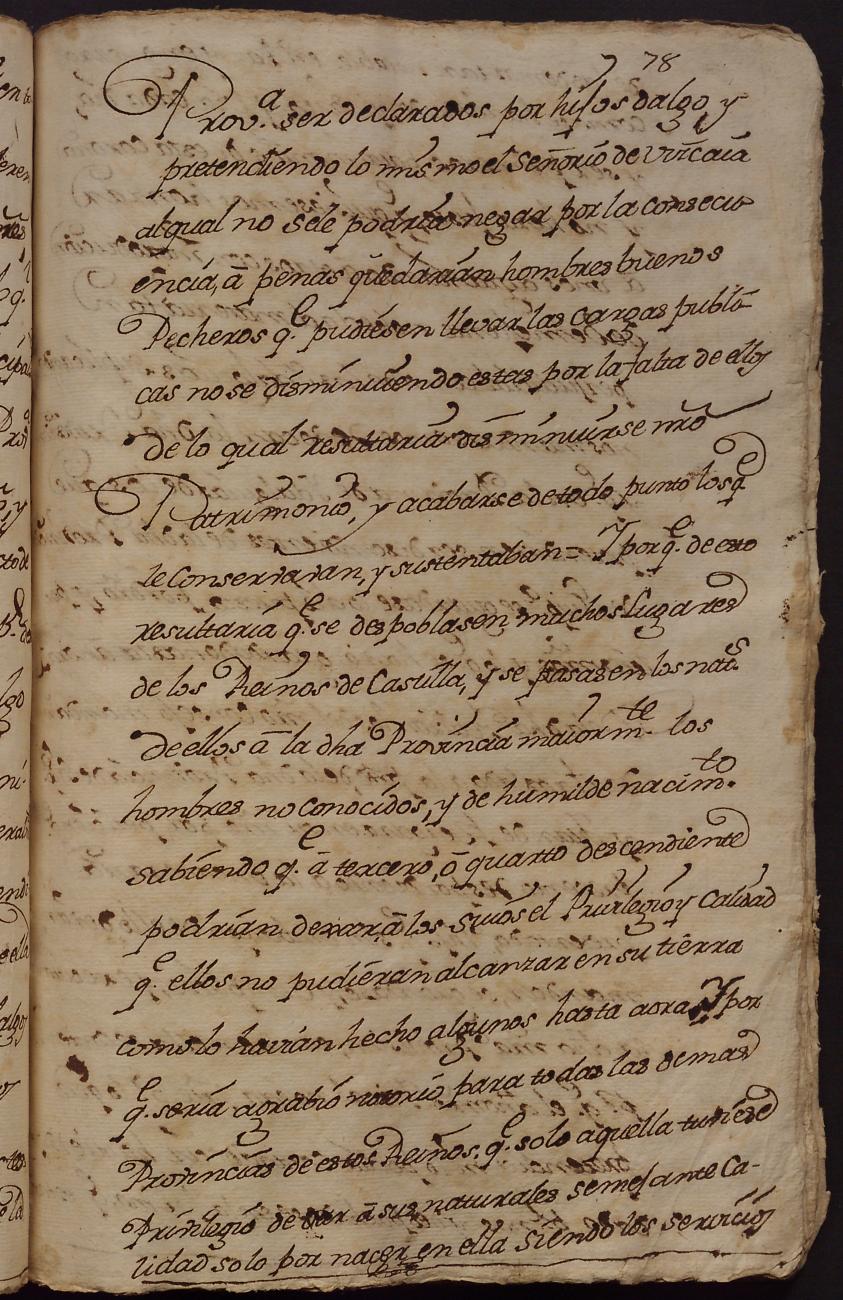 78
Prov.ª ser declarados por hijos dalgo, y
pretendiendo lo mismo el Señorio de Vizcaia
alqual no sele podria negar por la consecu
encia, â penas quedarian hombres buenos
Pecheros q.e pudiesen llevar las cargas publi
cas no se disminuiendo estas por la falta de ellos
de lo qual resultaria disminuirse nrô
Patrimonio, y acabarse de todo punto los q.e
le conservavan, y sustentaban = Y porq.e de esto
resultaria q.e se despoblasen muchos Lugares
de los Reinos de Castilla, y se pasasen los nats
de ellos â la dha Provincia maiorm.te los
hombres no conocidos, y de humilde nacim.to
sabiendo q.e â tercero, ô quarto descendiente
podrian dexar, â los suios el Privilegio y Calidad
q.e ellos no pudieran alcanzar en su tierra
como lo havian hecho algunos hasta aora Y por
q.e seria agrabio notorio para todas las demas
Provincias de estos Reinos, q.e solo aquella tubiese
Privilegio de dar â sus naturales semejante Ca-
lidad solo por nacer en ella siendo los servicios